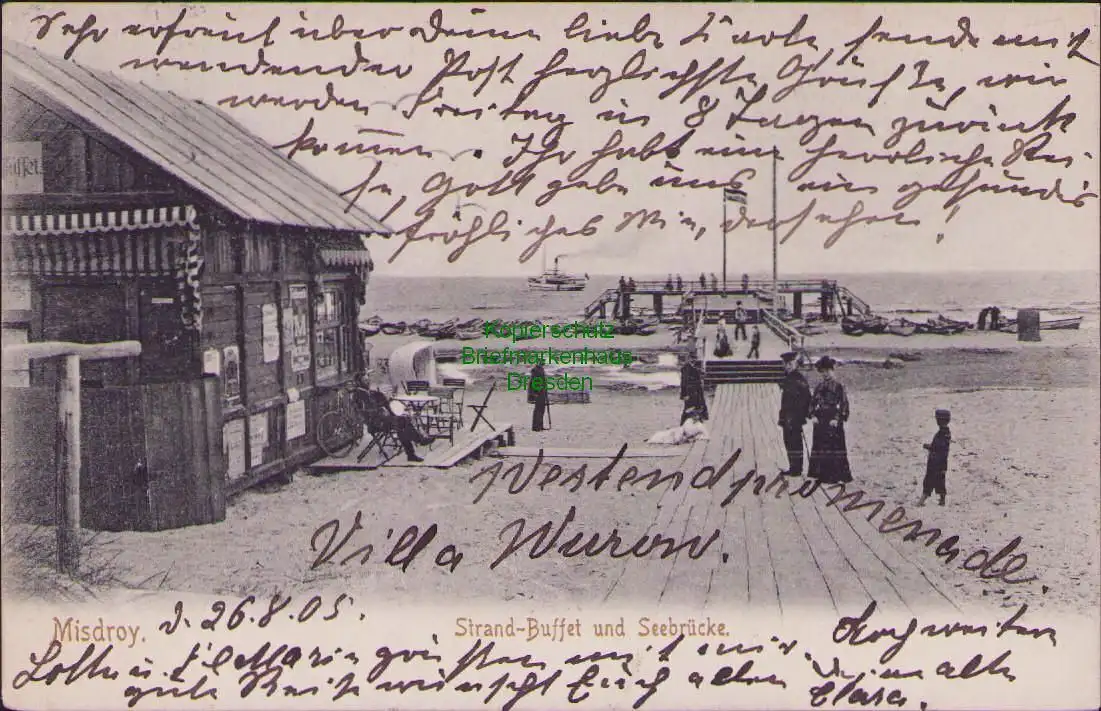 Sehr erfreut über Deine liebe Karte, sende mit
wendender Post herzlichste Grüße, wir
werden Freitag in 8 Tagen zurück
kommen. Ihr habt eine herrliche Rei-
se, Gott gebe uns ein gesundes
fröhliches Wiedersehen!
Buffet
Kopierschutz
Briefmarkenhaus
Dresden
Westendpromenade.
Villa Wurow.
Misdroy. d. 26.8.05. Strand-Buffet und Seebrücke.
Lotte u. Maria grüßen mit mir. Noch weiter
gute Reise wünscht Euch allen Deine alte
Clara.